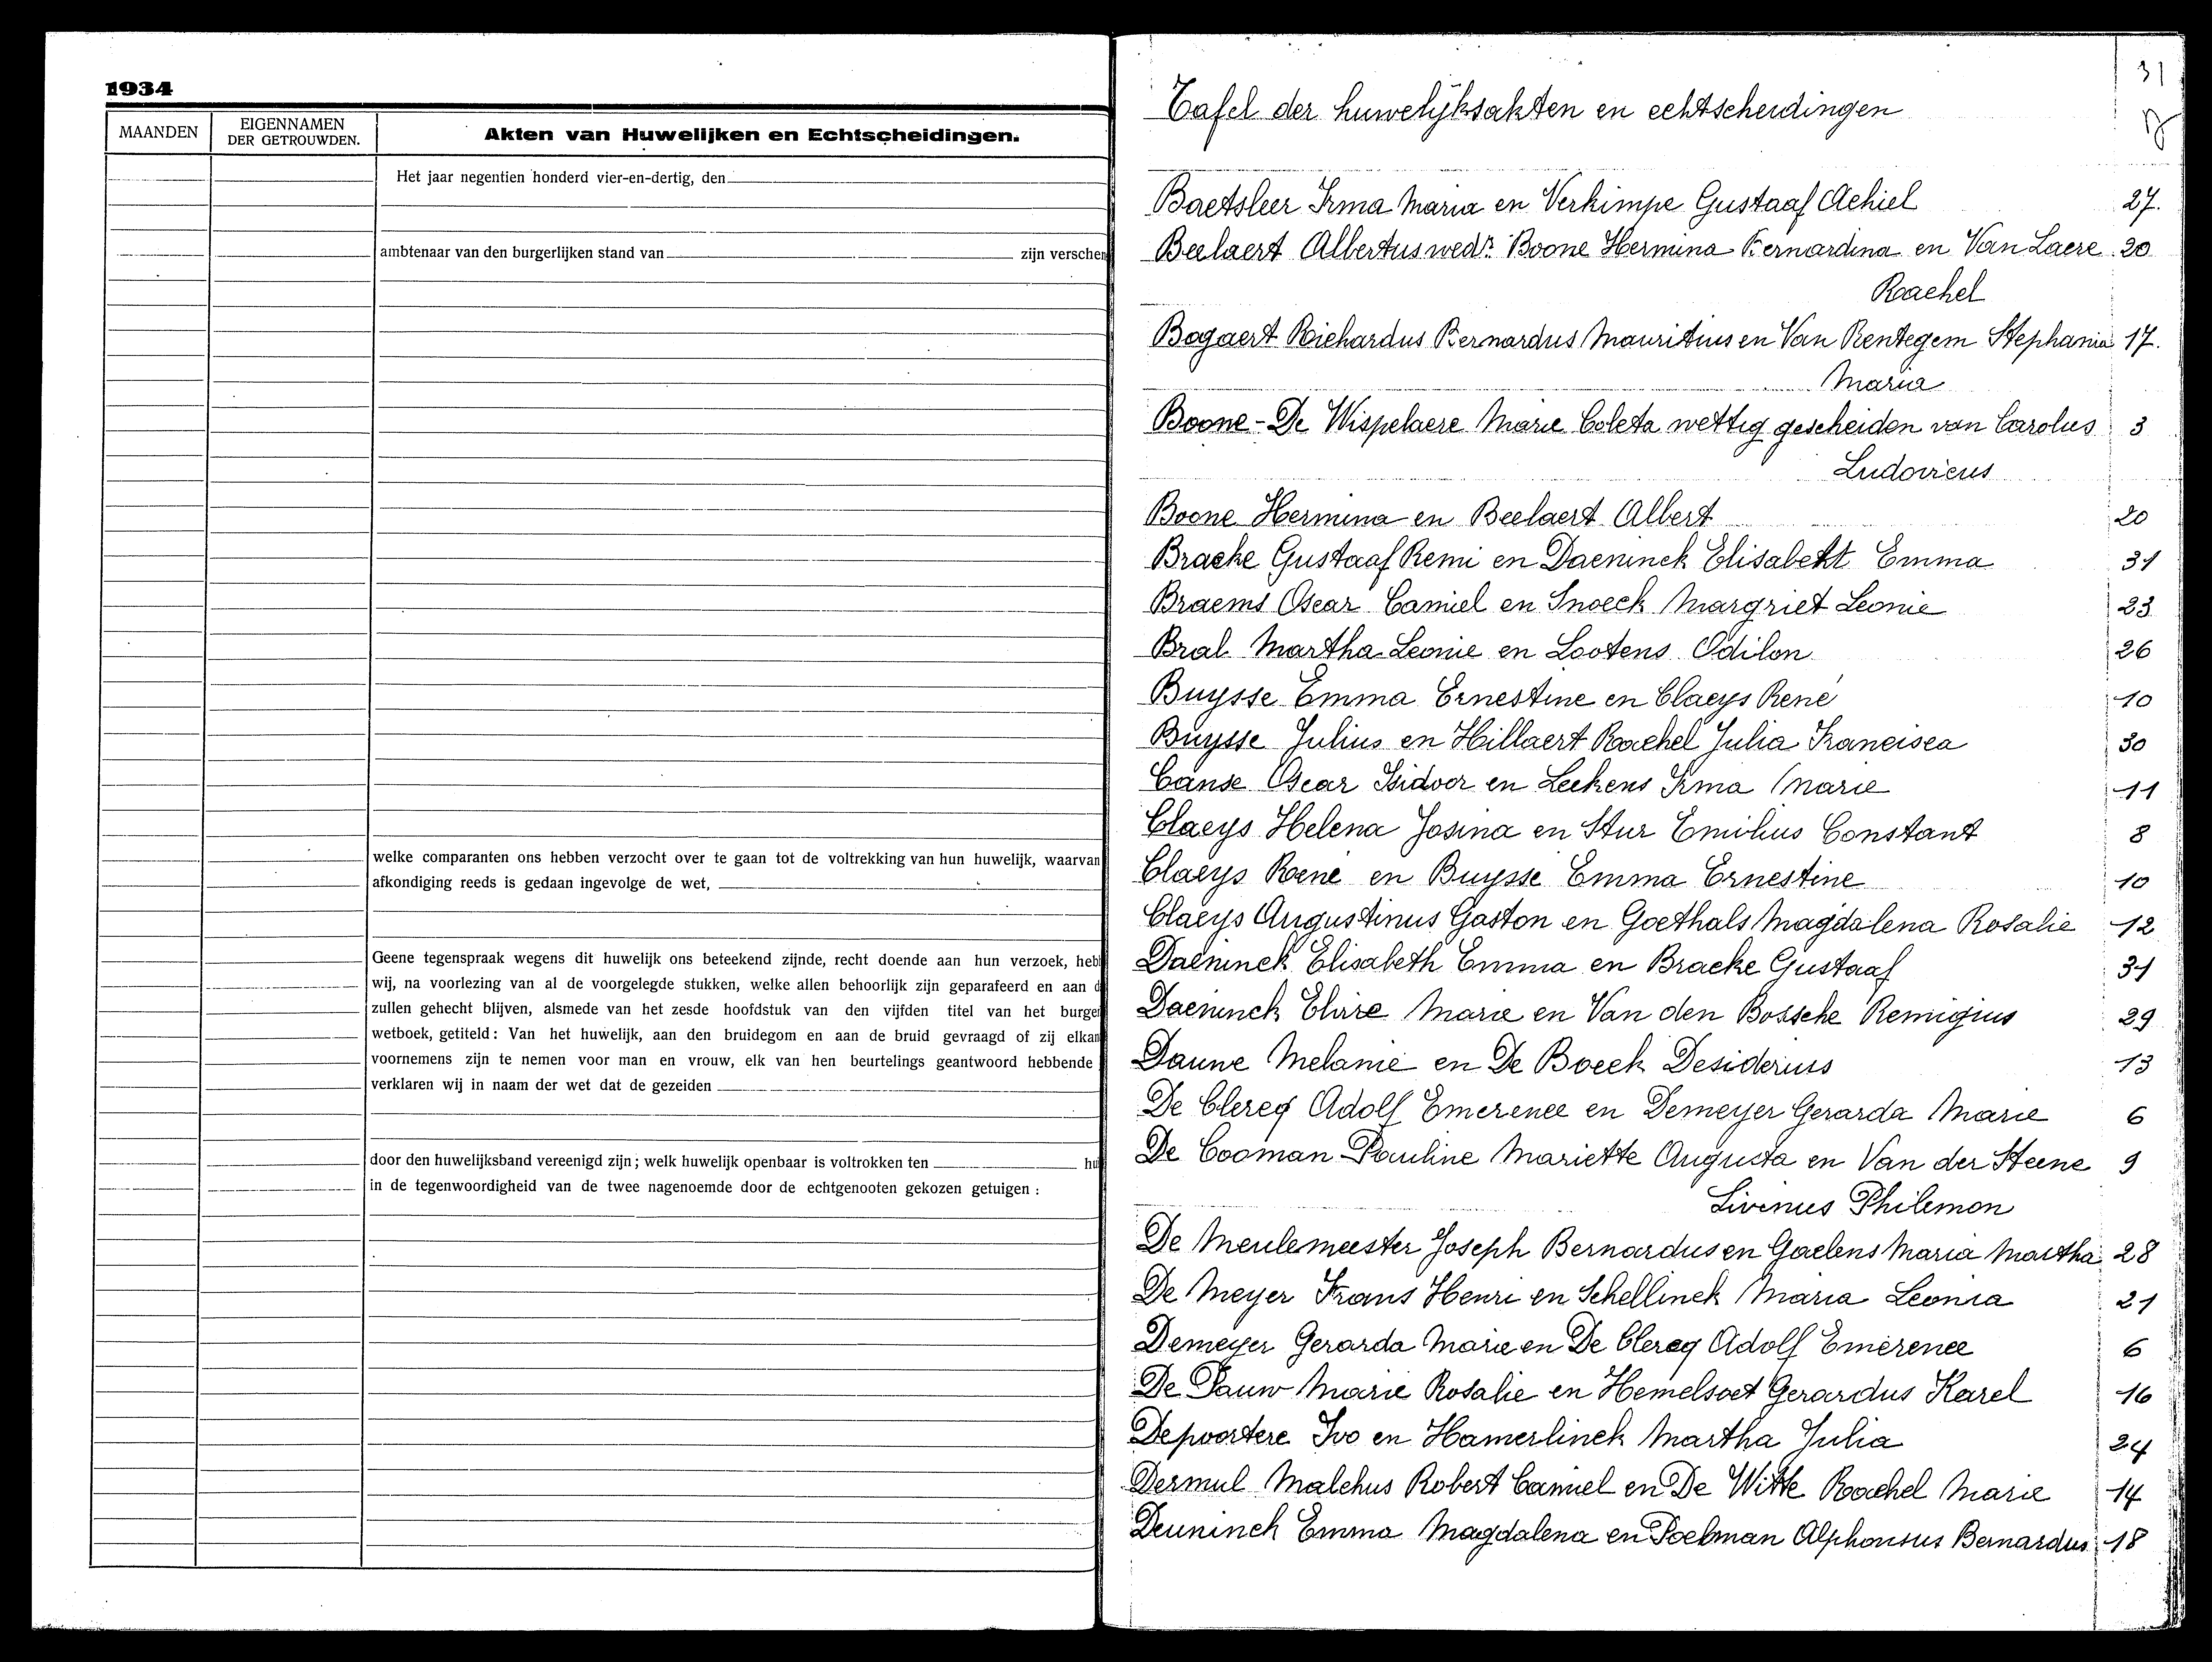 1934
MAANDEN
EIGENNAMEN
DER GETROUWDEN.
Akten van Huwelijken en Echtscheidingen.
Het jaar negentien honderd vier-en-dertig, den
ambtenaar van den burgerlijken stand van zijn verschen
welke comparanten ons hebben verzocht over te gaan tot de voltrekking van hun huwelijk, waarvan
afkondiging reeds is gedaan ingevolge de wet,
Geene tegenspraak wegens dit huwelijk ons beteekend zijnde, recht doende aan hun verzoek, heb
wij, na voorlezing van al de voorgelegde stukken, welke allen behoorlijk zijn geparafeerd en aan d
zullen gehecht blijven, alsmede van het zesde hoofdstuk van den vijfden titel van het burge
wetboek, getiteld: Van het huwelijk, aan den bruidegom en aan de bruid gevraagd of zij elkan
voornemens zijn te nemen voor man en vrouw, elk van hen beurtelings geantwoord hebbende
verklaren wij in naam der wet dat de gezeiden
door den huwelijksband vereenigd zijn; welk huwelijk openbaar is voltrokken ten hu
in de tegenwoordigheid van de twee nagenoemde door de echtgenooten gekozen getuigen :
31
Tafel der huwelijksakten en echtscheidingen
Baetsleer Irma Maria en Verkimpe Gustaaf Achiel 27.
Beelaert Albertus wedr. Boone Hermina Bernardina en Van Laere 20
Rachel
Bogaert Richardus Bernardus Mauritius en Van Rentegem Stephania 17.
Maria
Boone - De Wispelaere Marie Coleta wettig gescheiden van Carolus 3
Ludovicus
Boone Hermina en Beelaert Albert 20
Bracke Gustaaf Remi en Daeninck Elisabeht Emma 31
Braems Oscar Camiel en Snoeck Margriet Leonie 23
Bral Martha Leonie en Lootens Odilon 26
Buysse Emma Ernestine en Claeys René 10
Buysse Julius en Hillaert Rachel Julia Francisca 30
Canse Oscar Isidoor en Leekens Irma Marie 11
Claeys Helena Josina en Stur Emilius Constant 8
Claeys René en Buysse Emma Ernestine 10
Claeys Augustinus Gaston en Goethals Magdalena Rosalie 12
Daeninck Elisabeth Emma en Bracke Gustaaf 31
Daeninck Elvire Marie en Van den Bossche Remigius 29
Dauwe Melanie en De Boeck Desiderius 13
De Clercq Adolf Emerence en Demeyer Gerarda Marie 6
De Cooman Pauline Mariette Augusta en Van der Steene 9
Livinus Philemon
De Meulemeester Joseph Bernardus en Gaelens Maria Martha 28
De Meyer Frans Henri en Schellinck Maria Leonia 21
Demeyer Gerarda Marie en De Clercq Adolf Emerence 6
De Pauw Marie Rosalie en Hemelsoet Gerardus Karel 16
Depoortere Ivo en Hamerlinck Martha Julia 24
Dermul Malchus Robert Camiel en De Witte Rachel Marie 14
Deuninck Emma Magdalena en Poelman Alphonsus Bernardus 18